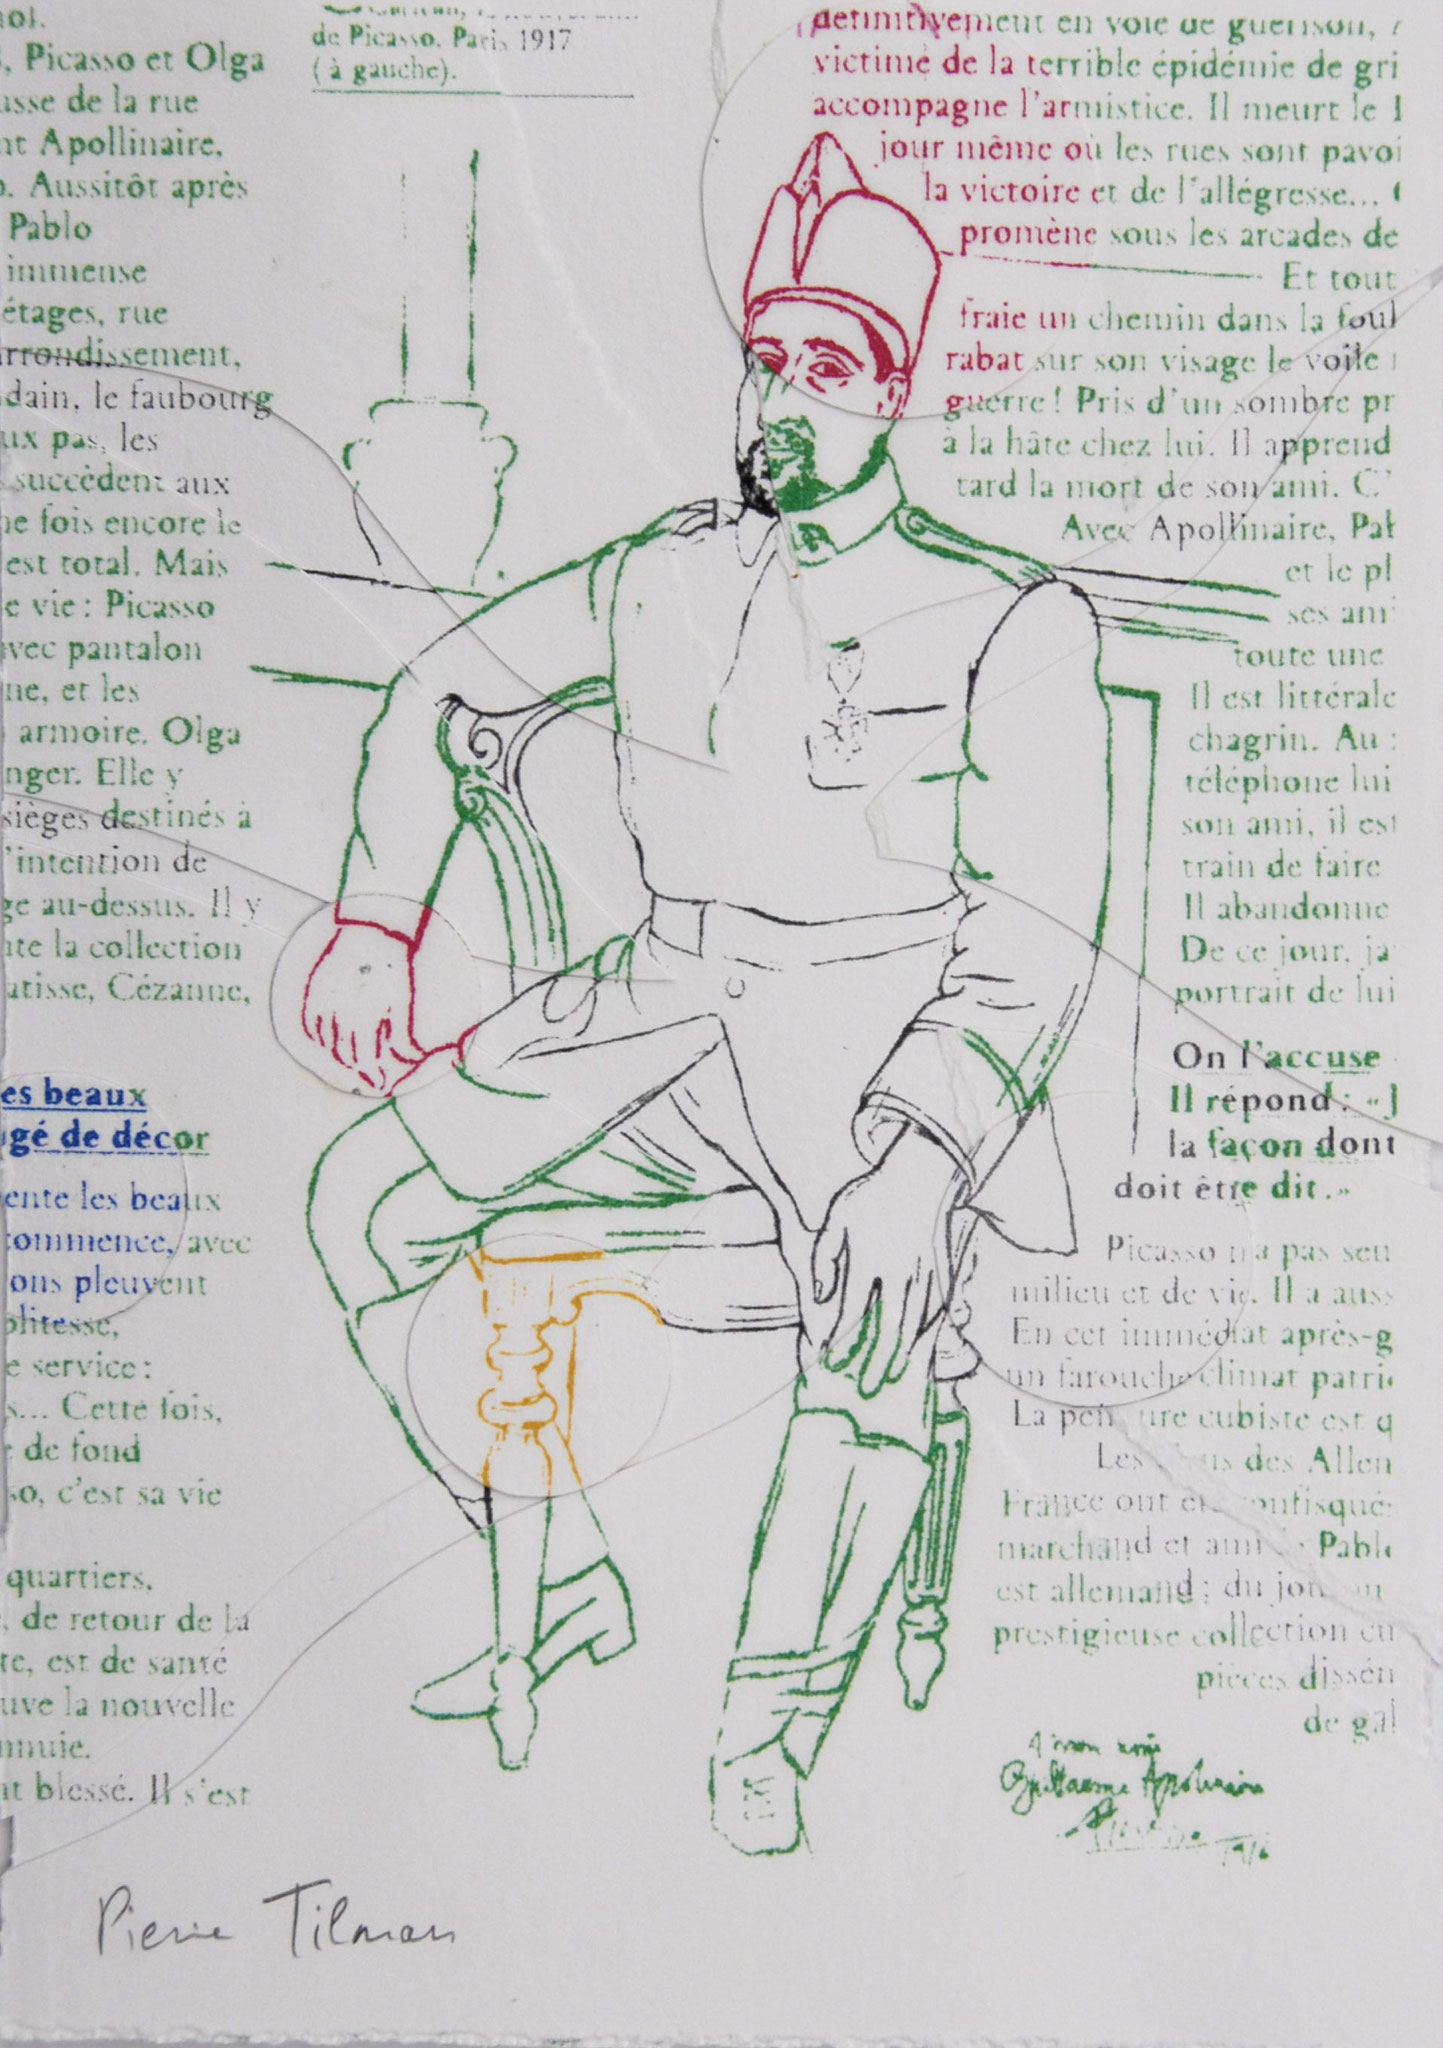 de Picasso. Paris 1917
(à gauche).
, Picasso et Olga
usse de la rue
nt Apollinaire,
. Aussitôt après
Pablo
immense
étages, rue
arrondissement,
dain, le faubourg
ux pas, les
succèdent aux
ne fois encore le
est total. Mais
e vie : Picasso
avec pantalon
ne, et les
armoire. Olga
nger. Elle y
sièges destinés à
l'intention de
ge au-dessus. Il y
ite la collection
atisse, Cézanne,
es beaux
gé de décor
ente les beaux
commence, avec
ons pleuvent
olitesse,
e service :
s... Cette fois,
de fond
so, c'est sa vie
quartiers,
, de retour de la
te, est de santé
uve la nouvelle
nnuie.
nt blessé. Il s'est
définitivement en voie de guérison,
victime de la terrible épidémie de gri
accompagne l'armistice. Il meurt le
jour même où les rues sont pavoi
la victoire et de l'allégresse...
promène sous les arcades de
Et tout
fraie un chemin dans la foul
rabat sur son visage le voile
guerre ! Pris d'un sombre pr
à la hâte chez lui. Il apprend
tard la mort de son ami. C'
Avec Apollinaire, Pab
et le pl
ses ami
toute une
Il est littérale
chagrin. Au
téléphone lui
son ami, il est
train de faire
Il abandonne
De ce jour, ja
portrait de lui
On l'accuse
Il répond : «J
la façon dont
doit être dit.»
Picasso n'a pas seu
milieu et de vie. Il a auss
En cet immédiat après-g
un farouche climat patri
La peinture cubiste est q
Les des Allem
France ont été confisqué
marchand et ami de Pablo
est allemand ; du jour
prestigieuse collection en
pièces dissém
de gal
A mon ami
Guillaume Apollinaire
Picasso 1916
Pierre Tilman